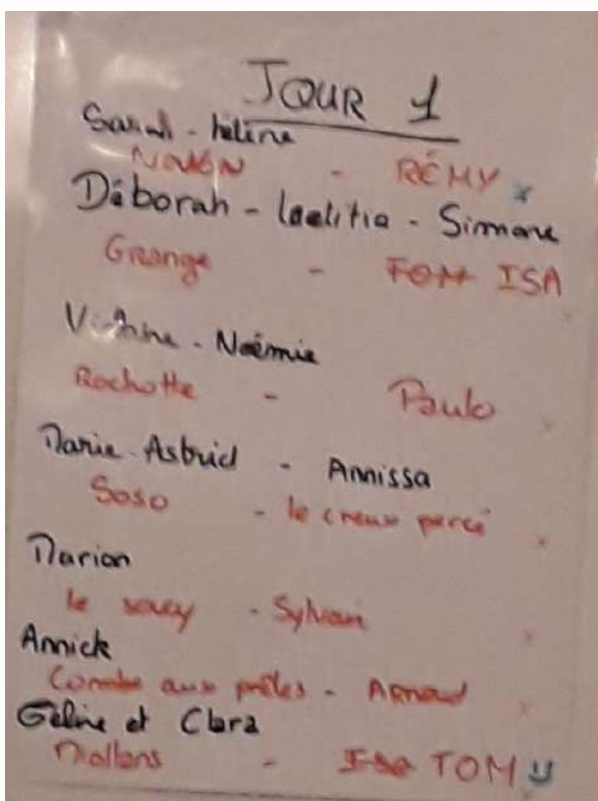 JOUR 1
Sarah - hélène
- RÉMY x
Déborah - laetitia - Simone
Grange - TOM ISA
- Noémie
Rochotte - Paulo
Marie Astrid - Annissa
Soso - le creux percé
Marion
le saucy - Sylvain
Annick
Combe aux prêles - Arnaud
Céline et Clara
- Isa TOM